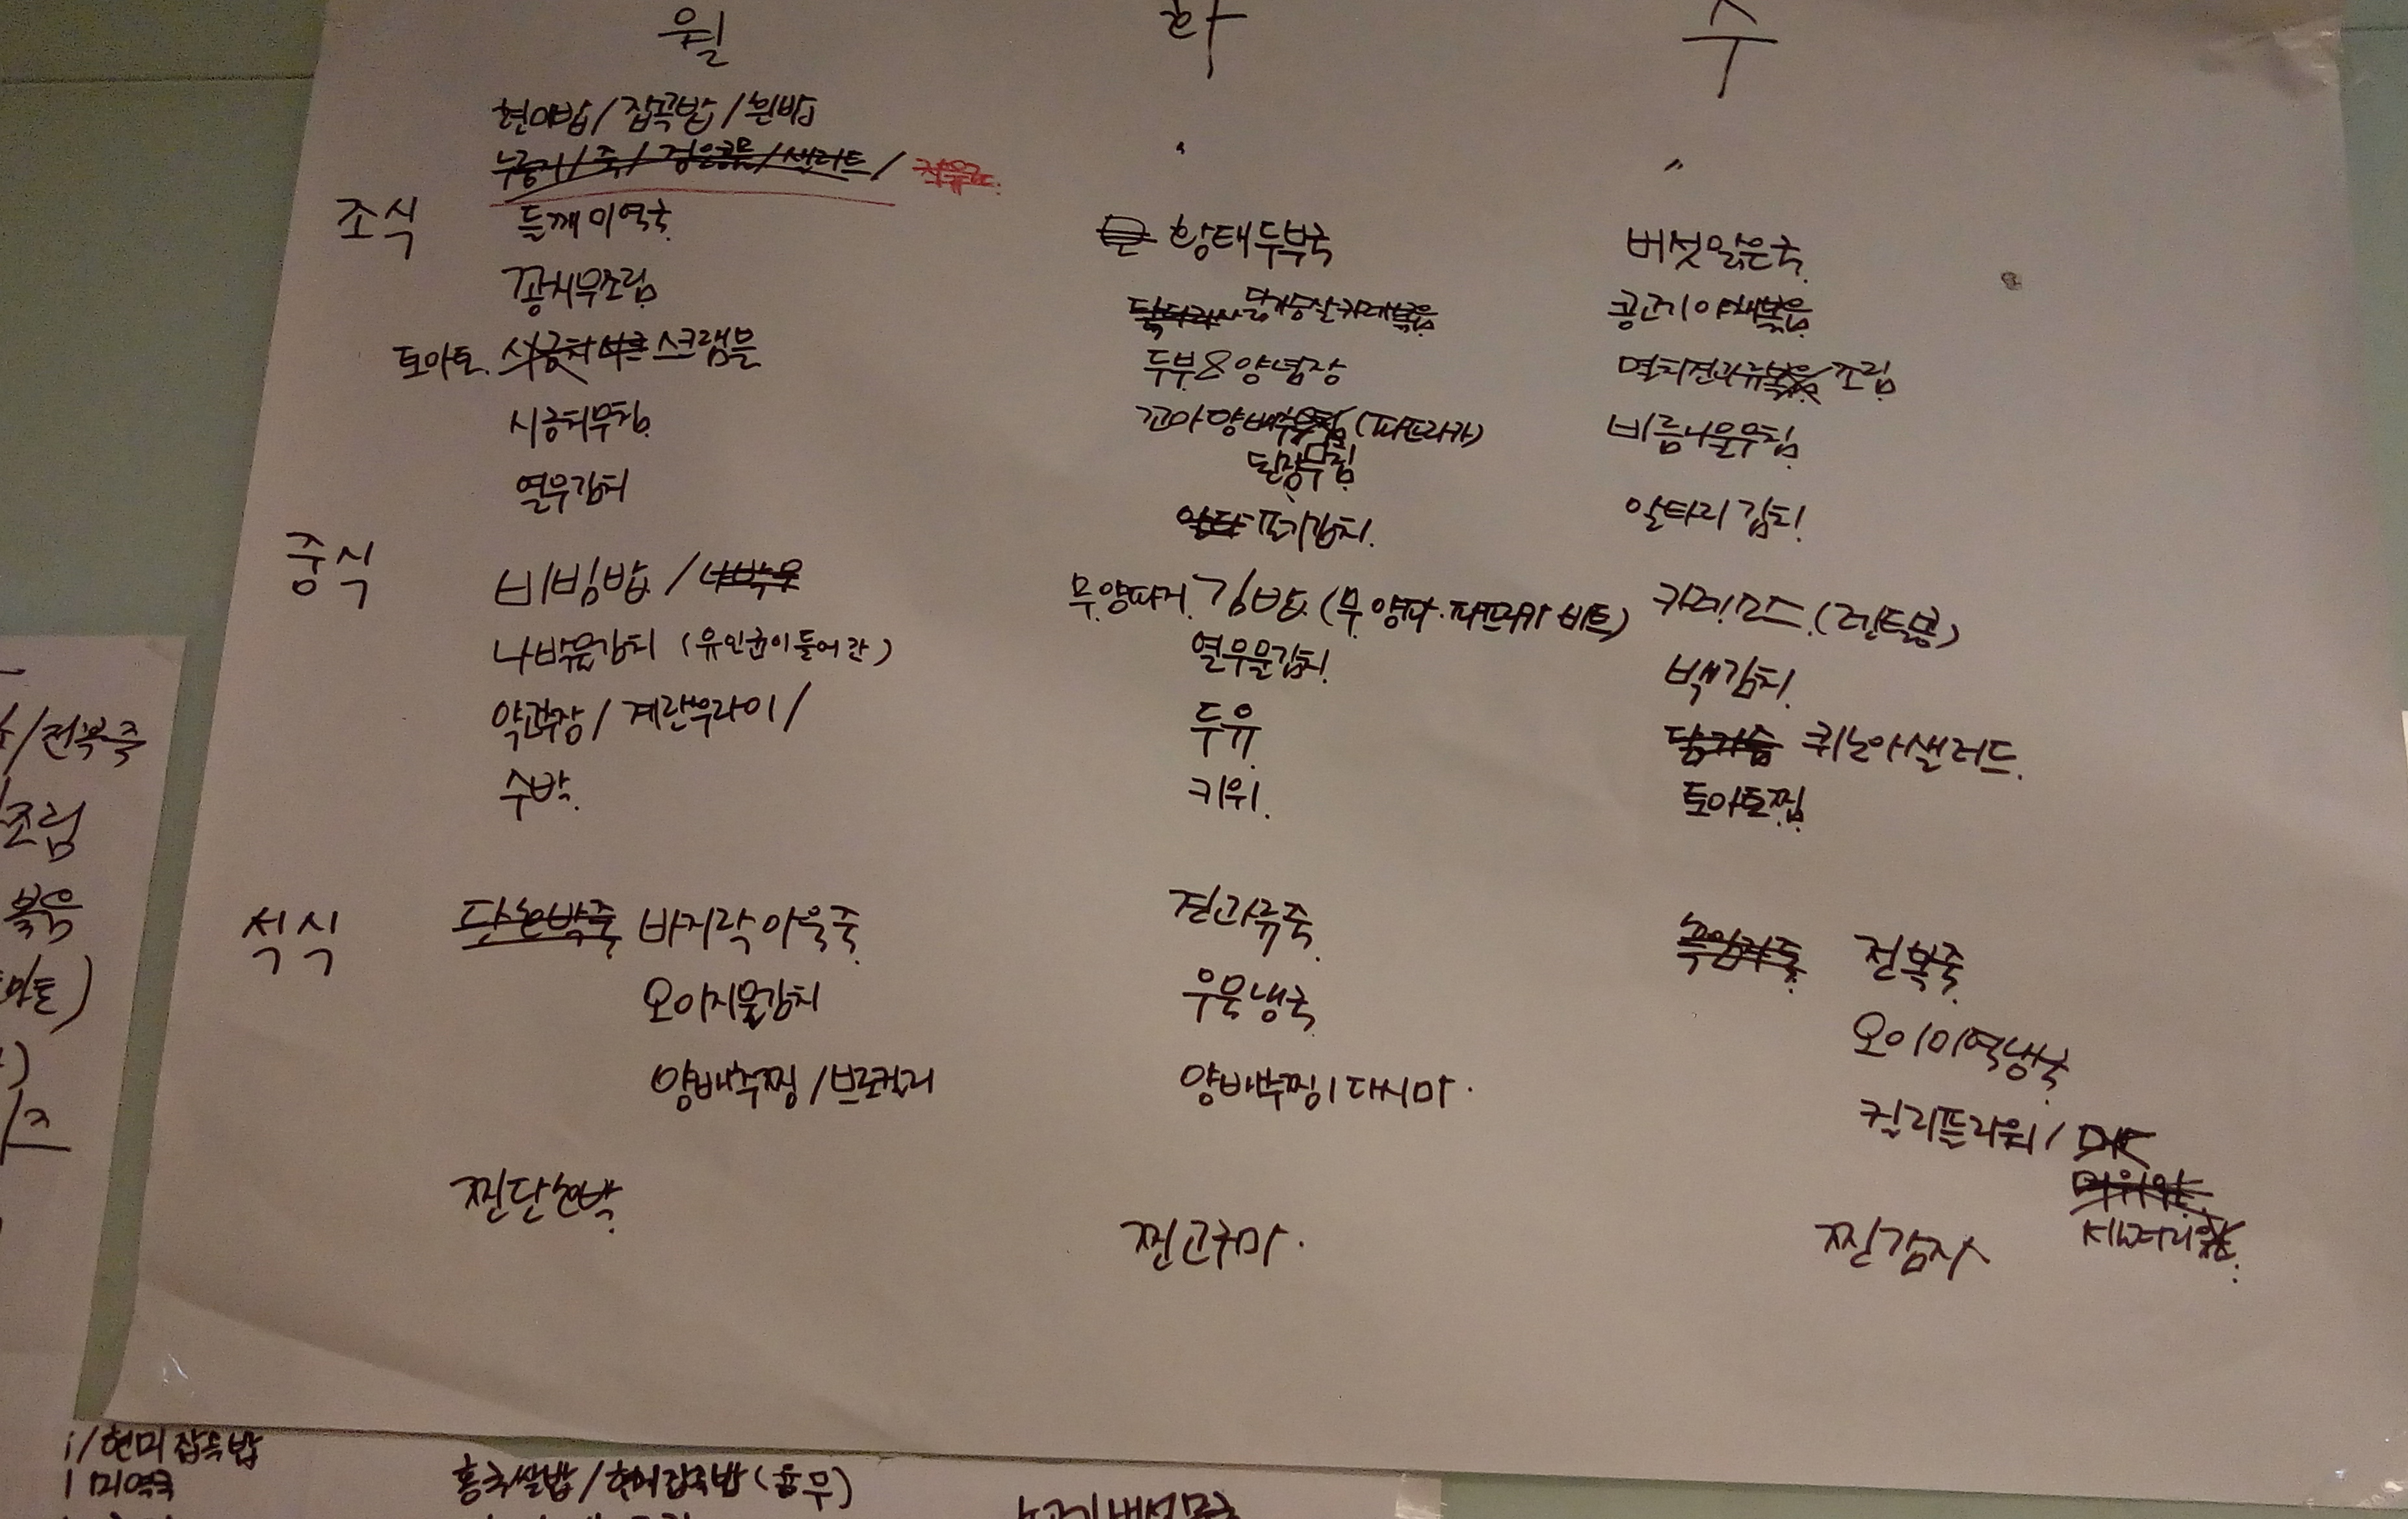 월 화 수
현미밥/잡곡밥/흰밥 〃 〃
누룽지/죽/검은콩물/샐러드/
조식
들깨미역국
꽁치무조림
토마토. 스크램블
시금치무침
열무김치
황태두부국
닭가슴살카레볶음
두부&양념장
꼬마양배추 (파프리카)
된장무침
포기김치.
버섯맑은국
콩고기야채볶음
멸치견과류볶음 조림
비름나물무침
알타리김치
중식
비빔밥 / 나박무
나박물김치 (유인균이들어간)
약고추장/계란후라이/
수박.
무.양파.거. 김밥 (무.양파.파프리카 비트)
열무물김치
두유
키위.
카레.라이스.(렌틸콩)
백김치
닭가슴 퀴노아샐러드.
토마토찜
석식
단호박죽 바지락아욱죽.
오이지물김치
양배추찜/브로컬리
찐단호박.
견과류죽
우묵냉국
양배추찜/다시마.
찐고구마.
전복죽
오이미역냉국
컬리플라워/
찐감자
/전복죽
조림
볶음
/현미잡곡밥
미역국
홍국쌀밥/현미잡곡밥(율무)